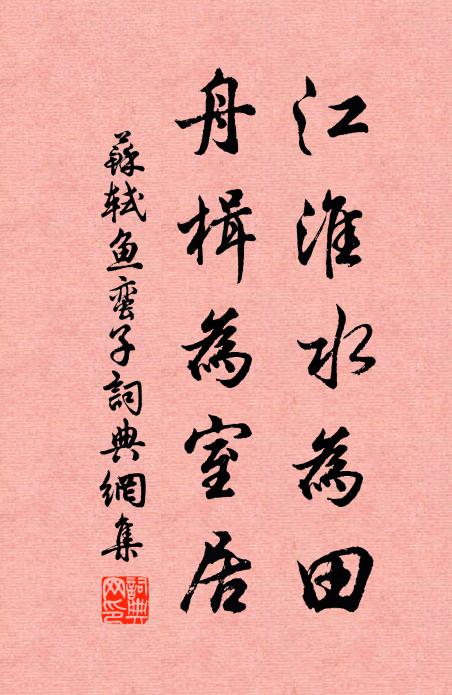 江淮水為田
舟楫為室居
蘇軾魚蠻子詞典網集
詞典网印